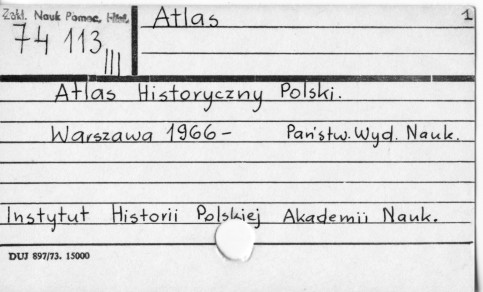 Zakł. Nauk Pomoc. Hist.
74 113 III
Atlas
1
Atlas Historyczny Polski.
Warszawa 1966- Państw. Wyd. Nauk.
Instytut Historii Polskiej Akademii Nauk.
DUJ 897/73. 15000